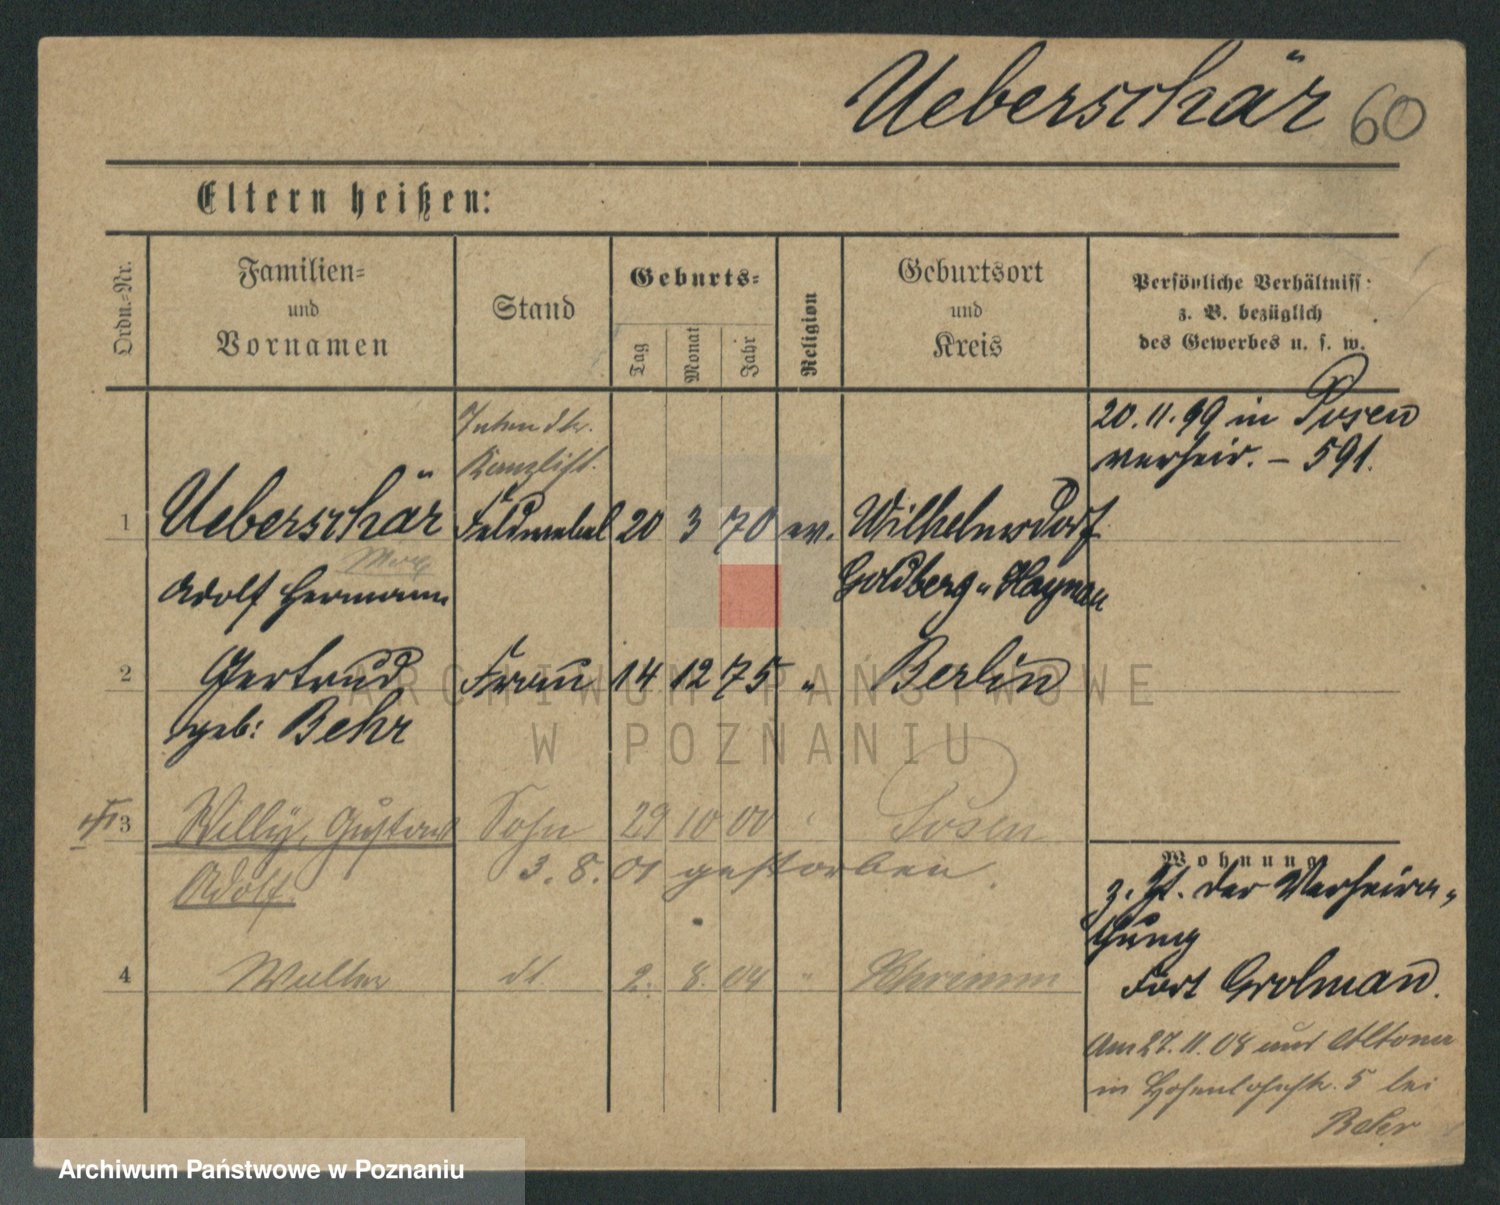 Ueberschär 60
Eltern heißen:
Ordn.-Nr.
Familien- und Vornamen
Stand
Geburts-
Tag
Monat
Jahr
Religion
Geburtsort und Kreis
Persönliche Verhältniss:
z. B. bezüglich
des Gewerbes u. s. w.
20.11.99 in Posen
verheir. – 591.
Kanzlist.
1 Ueberschär Feldwebel 20 3 70 ev. Wilhelmsdorf
Adolf Hermann Goldberg-Haynau
2 Gertrud Frau 14 12 75 " Berlin
geb: Behr
3 Willy, Gustav Sohn 29 10 00 Posen
Adolf. 3.8.01 gestorben.
Wohnung
z. Zt. der Verheira-
thung
Fort Grolman.
4 Walter dt. 2. 8. 04 " Schrimm
Am 27.11.08 aus Altona
in Hohenlohestr. 5 bei
Behr
ARCHIWUM PAŃSTWOWE
W POZNANIU
Archiwum Państwowe w Poznaniu